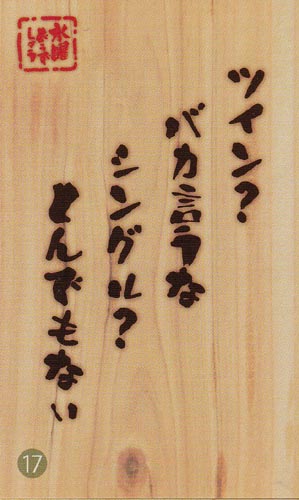 ツイン?
バカ言うな
シングル?
とんでもない
水曜
どうでしょう
17